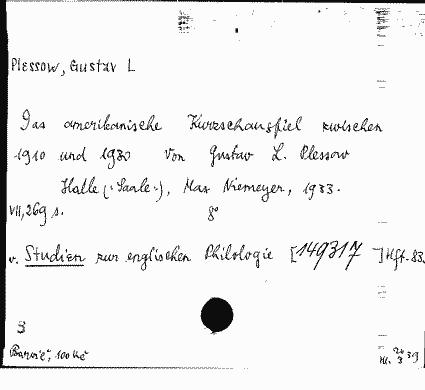 Plessow, Gustav L
Das amerikanische Kurzschauspiel zwischen
1910 und 1930 Von Gustav L. Plessow
Halle (:Saale:), Max Niemeyer, 1933.
VII, 269 s. 8°
v. Studien zur englischen Philologie [149317] Hft. 83.
3
100 Kč